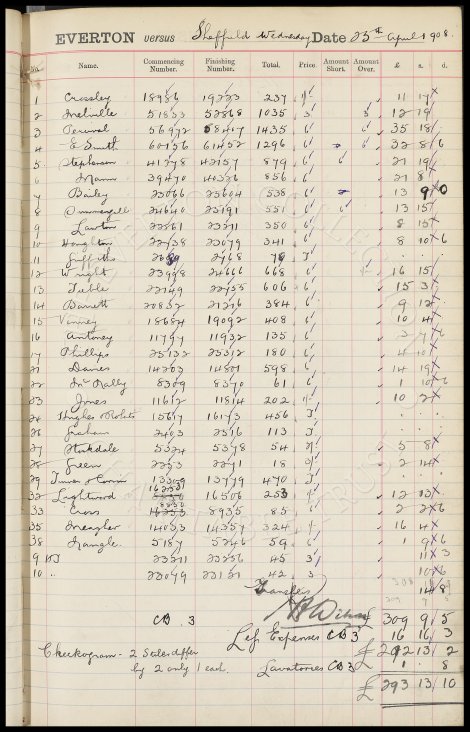 EVERTON versus Sheffield Wednesday Date 25th April 1908.
No. Name. Commencing Number. Finishing Number. Total. Price. Amount Short. Amount Over. £ s. d.
1 Crossley 18986 19223 237 11 17
2 Melville 51833 52868 1035 3 12 19
3 Percival 56972 58407 1435 6 35 18
4 E Smith 60156 61452 1296 6 32 8 6
5 Stephenson 41278 42157 879 6 21 19
6 Mann 39470 40326 856 6 21 8
7 Bailey 25066 25604 538 6 13 9 0
8 24640 25191 551 6 13 15
9 Lawton 22861 23211 350 6 8 15
10 Houghton 22738 23079 341 6 8 10 6
11 Griffiths 78 3
12 Wright 23998 24666 668 6 16 15
13 22149 22755 606 6 15 3
14 Barrett 20832 21216 384 6 9 12
15 Vanney 18684 19092 408 6 10 4
16 Antoney 11797 11932 135 6 3 7 6
17 Phillips 25132 25312 180 6 4 10
21 Davies 14203 14801 598 6 14 19
22 McNally 8309 8370 61 6 1 10 6
23 Jones 11612 11814 202 10 2
24 Hughes 15617 16173 456
26 Graham 2403 2516 113
27 Stockdale 5324 5378 54 5 8
28 Green 2253 2271 18 2 14
29 13309 13779 470
32 Lightwood 16253 16506 253 12 13
33 Cross 8850 8935 85 6 2 2 6
35 Meagher 14033 14357 324 16 4
38 Nangle 5187 5246 59 6 1 9 6
9 23211 23256 45 3 11 3
10 23079 23121 42 3 10 6
Transfers 14 8
CB 3 £ 309 9 5
Less Expenses CB 3 16 16 3
Checkogram - 2 Sellers differ £ 292 13 2
by 2 only 1 each. Lavatories CB 3 1 . 8
£ 293 13 10